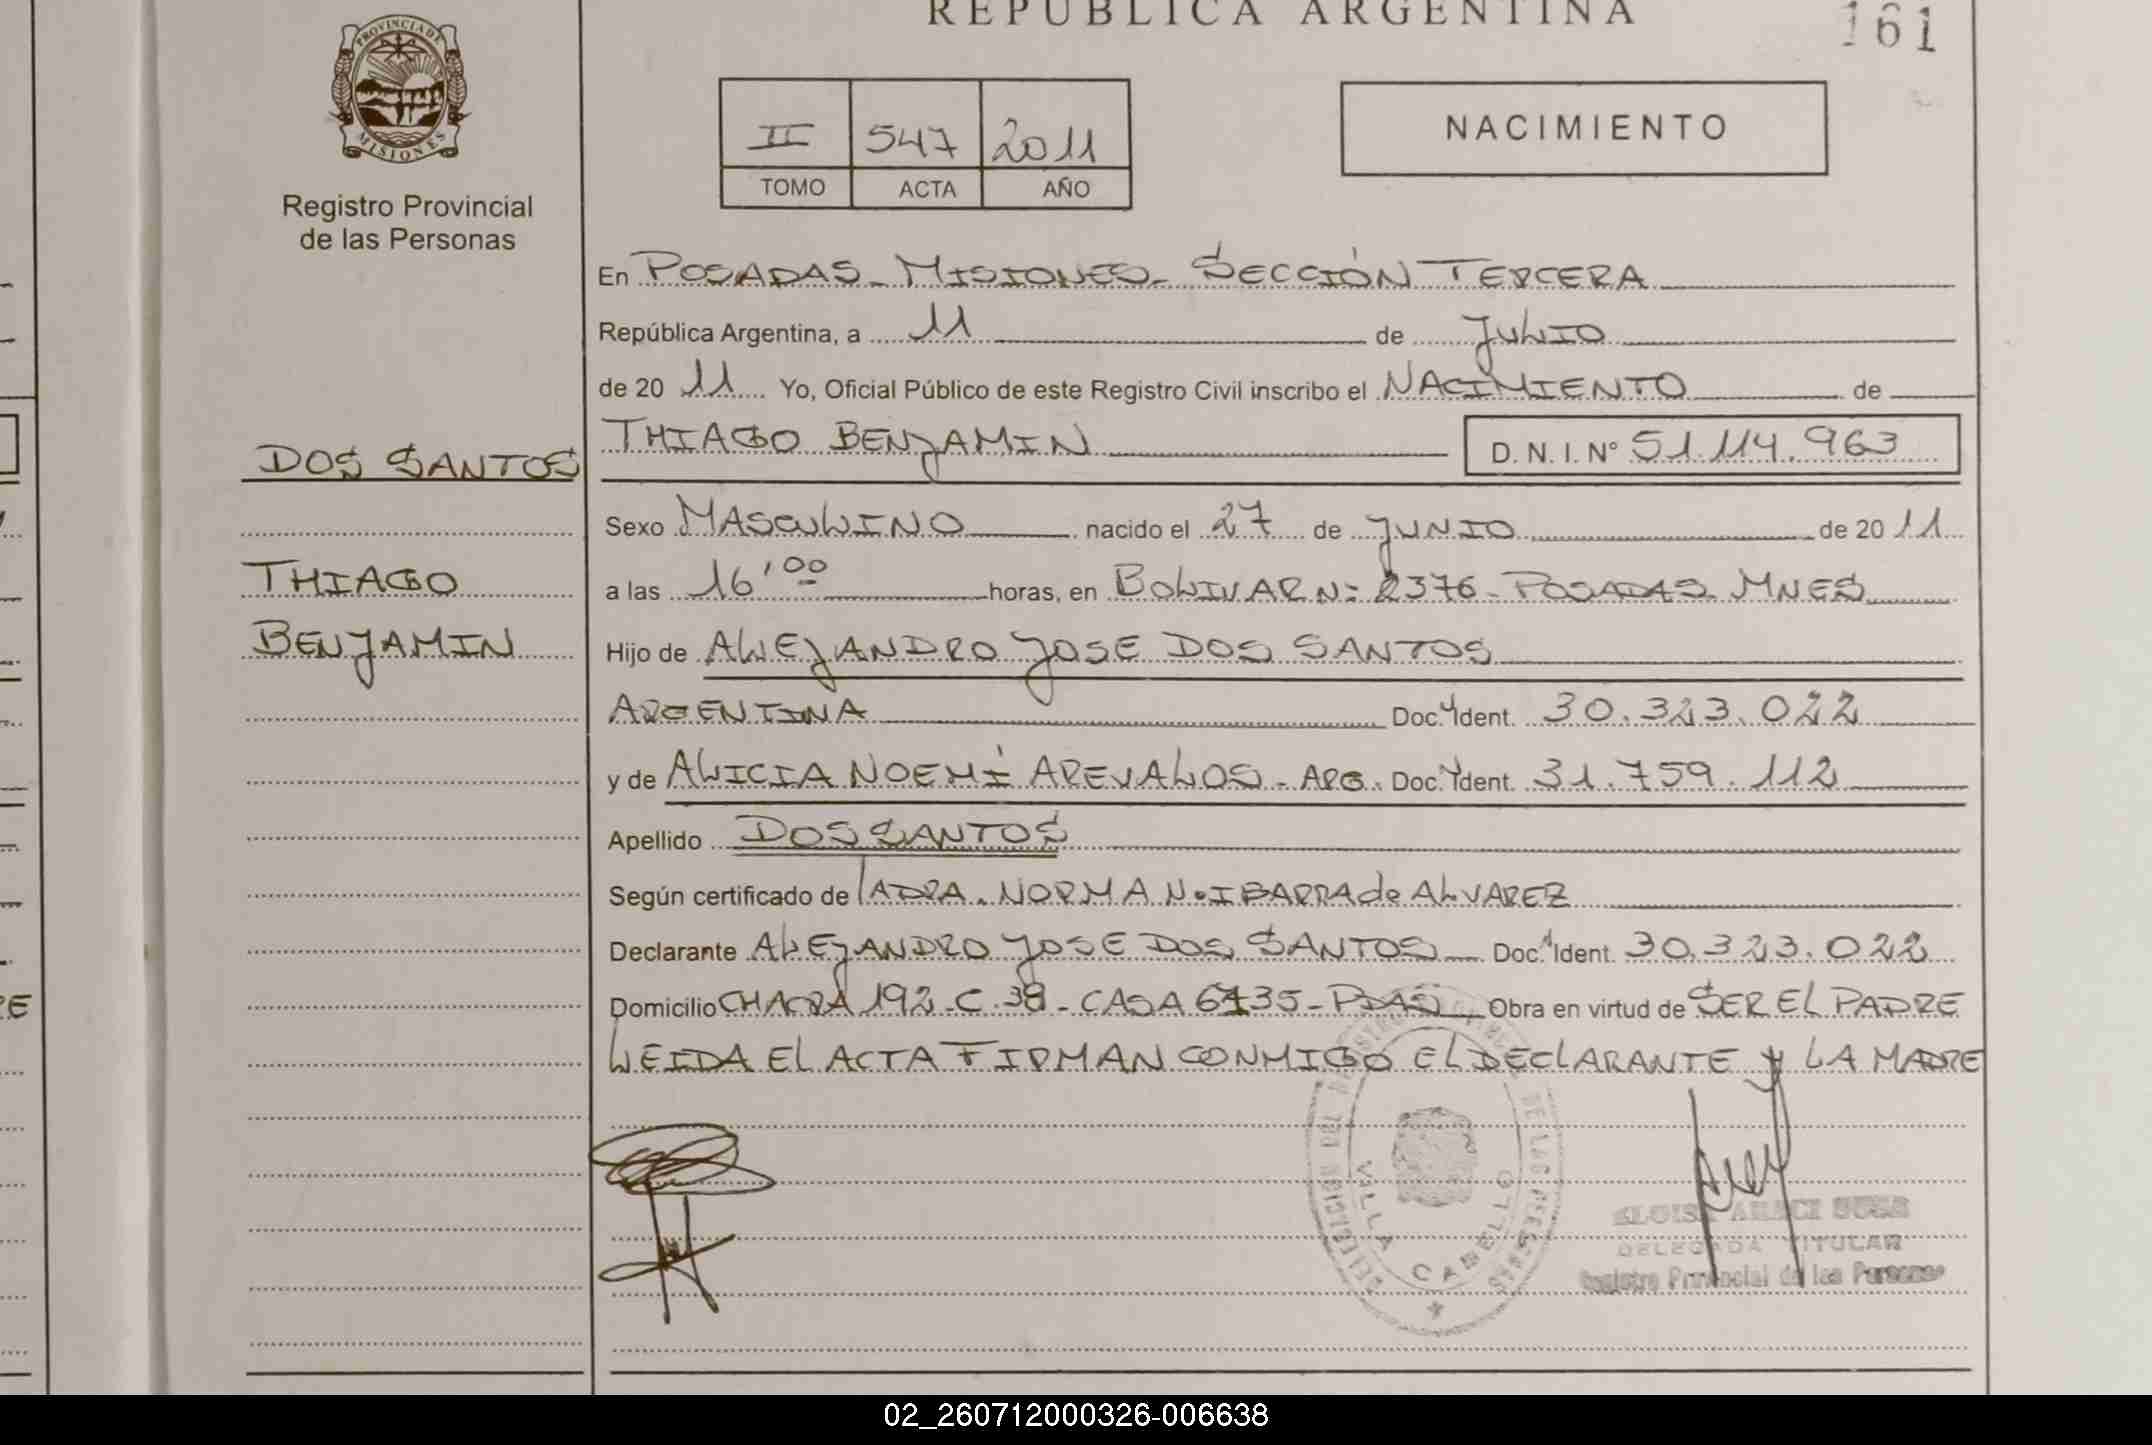 REPUBLICA ARGENTINA
161
PROVINCIA DE MISIONES
Registro Provincial
de las Personas
II 547 2011
TOMO ACTA AÑO
NACIMIENTO
En POSADAS - MISIONES - SECCIÓN TERCERA
República Argentina, a 11 de JULIO
de 20 11 Yo, Oficial Público de este Registro Civil inscribo el NACIMIENTO de
THIAGO BENJAMIN D. N. I. Nº 51.114.963
DOS SANTOS
THIAGO
BENJAMIN
Sexo MASCULINO nacido el 27 de JUNIO de 20 11
a las 16'00 horas, en BOLIVAR Nº 2376 - POSADAS MNES
Hijo de ALEJANDRO JOSE DOS SANTOS
ARGENTINA Doc. Ident. 30.323.022
y de ALICIA NOEMÍ AREVALOS - ARG. Doc. Ident. 31.759.112
Apellido DOS SANTOS
Según certificado de LA DRA. NORMA N. IBARRA de ALVAREZ
Declarante ALEJANDRO JOSE DOS SANTOS Doc. Ident. 30.323.022
Domicilio CHACRA 192 - C. 38 - CASA 6735 - PDAS Obra en virtud de SER EL PADRE
LEIDA EL ACTA FIRMAN CONMIGO EL DECLARANTE Y LA MADRE
VILLA CABELLO
DELEGADA TITULAR
Registro Provincial de las Personas
02_260712000326-006638